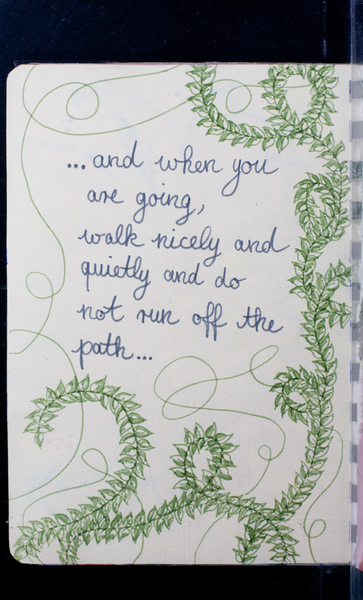 ...and when you
are going,
walk nicely and
quietly and do
not run off the
path...